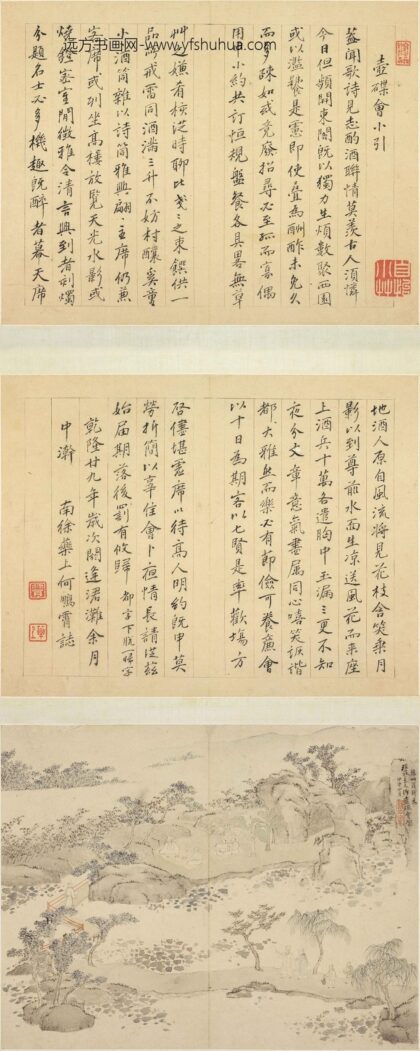 远方书画网-www.yfshuhua.com
壺碟會小引
蓋聞歌詩見志酌酒聯情莫羨古人須憐
今日但頻開東閤既以獨力生煩數聚西園
或以濫饕是憲即使疊為酬酢未免久
而多疎如或竟廢招尋必至孤而寡偶
用小約共訂恒規盤餐各具畧無草
艸之嫌肴核泛時聊比戔戔之束饌供一
品所戒雷同酒滿三升不妨村釀奚童
小酒筒雜以詩筒雅興翩翩主席仍兼
客席或列坐高樓放覽天光水影或
燒鐙密室閒徵雅令清言興到者刻燭
分題名士必多機趣既醉者幕天席
地酒人原自風流將見花枝含笑乘月
影以到尊前水面生涼送風花而來座
上酒兵十萬各遣胸中玉漏三更不知
夜分文章意氣盡屬同心嘻笑詼諧
都大雅然而樂必有節儉可養廉會
以十日為期客以七賢是率歡場方
啟僂堪虛席以待高人明約既申莫
勞折簡以辜佳會卜夜情長請從茲
始屆期落後罰有攸歸
都字下脫一歸字
乾隆廿九年歲次閼逢涒灘余月
中澣
南徐藥上何鵬霄誌